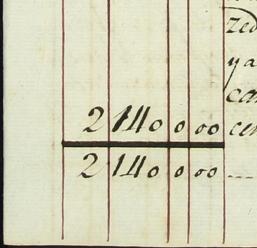 zed
y a
can
2 140 0 00 cen
2 140 0 00